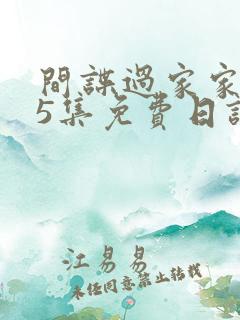 間諜過家家
5集免費日語
江易易
未任同意禁止轉載